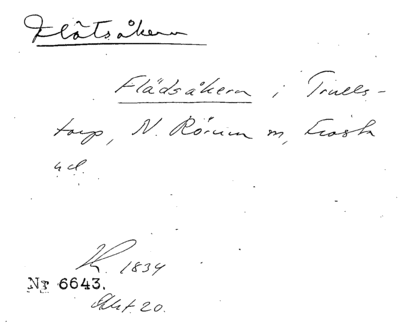 Flätsåkern
Flädsåkern i Trulls-
torp, N. Rörum sn, Frosta
hd.
K. 1834
Nr 6643.
Akt 20.